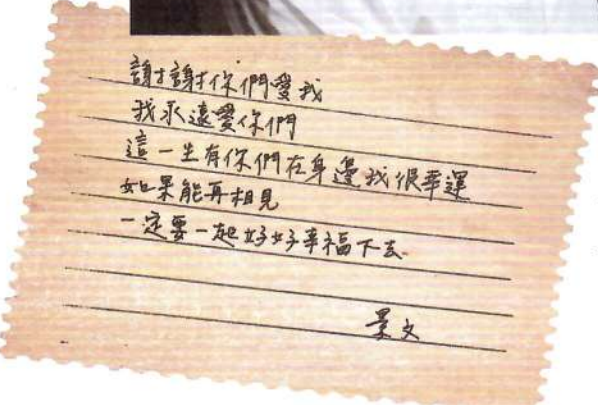 謝謝你們愛我
我永遠愛你們
這一生有你們在身邊我很幸運
如果能再相見
一定要一起好好幸福下去
景文